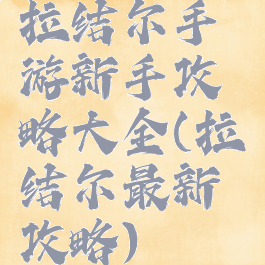 拉结尔手
游新手攻
略大全(拉
结尔最新
攻略)